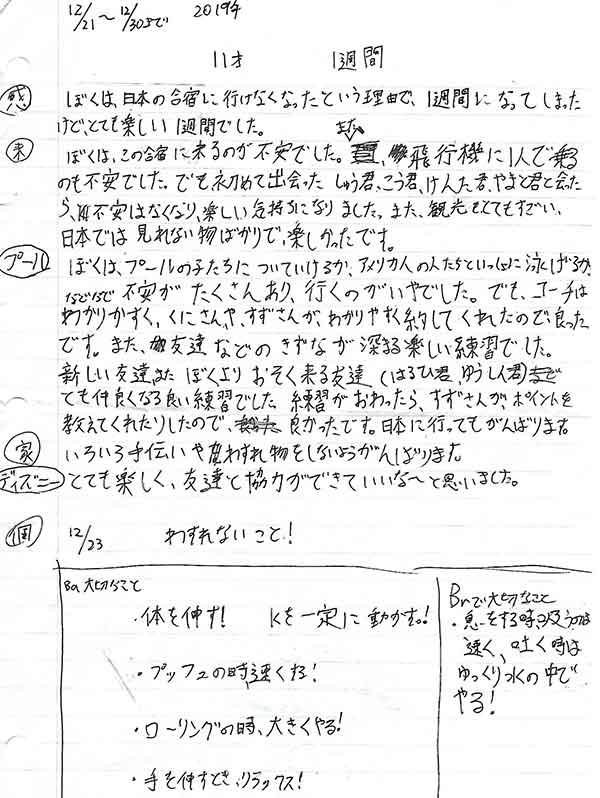 12/21〜12/30まで 2019年
11才 1週間
感 ぼくは、日本の合宿に行けなくなったという理由で、1週間になってしまった
けど、とても楽しい1週間でした。
来 ぼくは、この合宿に来るのが不安でした。また、飛行機に1人で乗る
のも不安でした。でも初めて出会ったしゅう君、こう君、けんた君、やまと君と会った
ら、不安はなくなり、楽しい気持ちになりました。また、観光もとてもすごい、
日本では見れない物ばかりで、楽しかったです。
プール ぼくは、プールの子たちについていけるか、アメリカ人の人たちといっしょに泳げるか、
などなど不安がたくさんあり、行くのがいやでした。でも、コーチは
わかりやすく、くにさんや、すずさんが、わかりやすく約してくれたので良った
です。また、友達などのきずなが深まる楽しい練習でした。
新しい友達また ぼくよりおそく来る友達(はるひ君、ゆうしん君)まで
ても仲良くなる良い練習でした 練習がおわったら、すずさんが、ポイントを
教えてくれたりしたので、良かったです。日本に行ってもがんばります。
家 いろいろ手伝いやわすれ物をしないようがんばります
ディズニー とても楽しく、友達と協力ができていいな〜と思いました。
個 12/23 わすれないこと!
Ba 大切なこと
・体を伸す! Kを一定に動かす。!
・プッフェの時、速くする!
・ローリングの時、大きくやる!
・手を伸すとき、リラックス!
Brで大切なこと
・息をする時、吸うのは
速く、吐く時は
ゆっくり水の中で
やる!